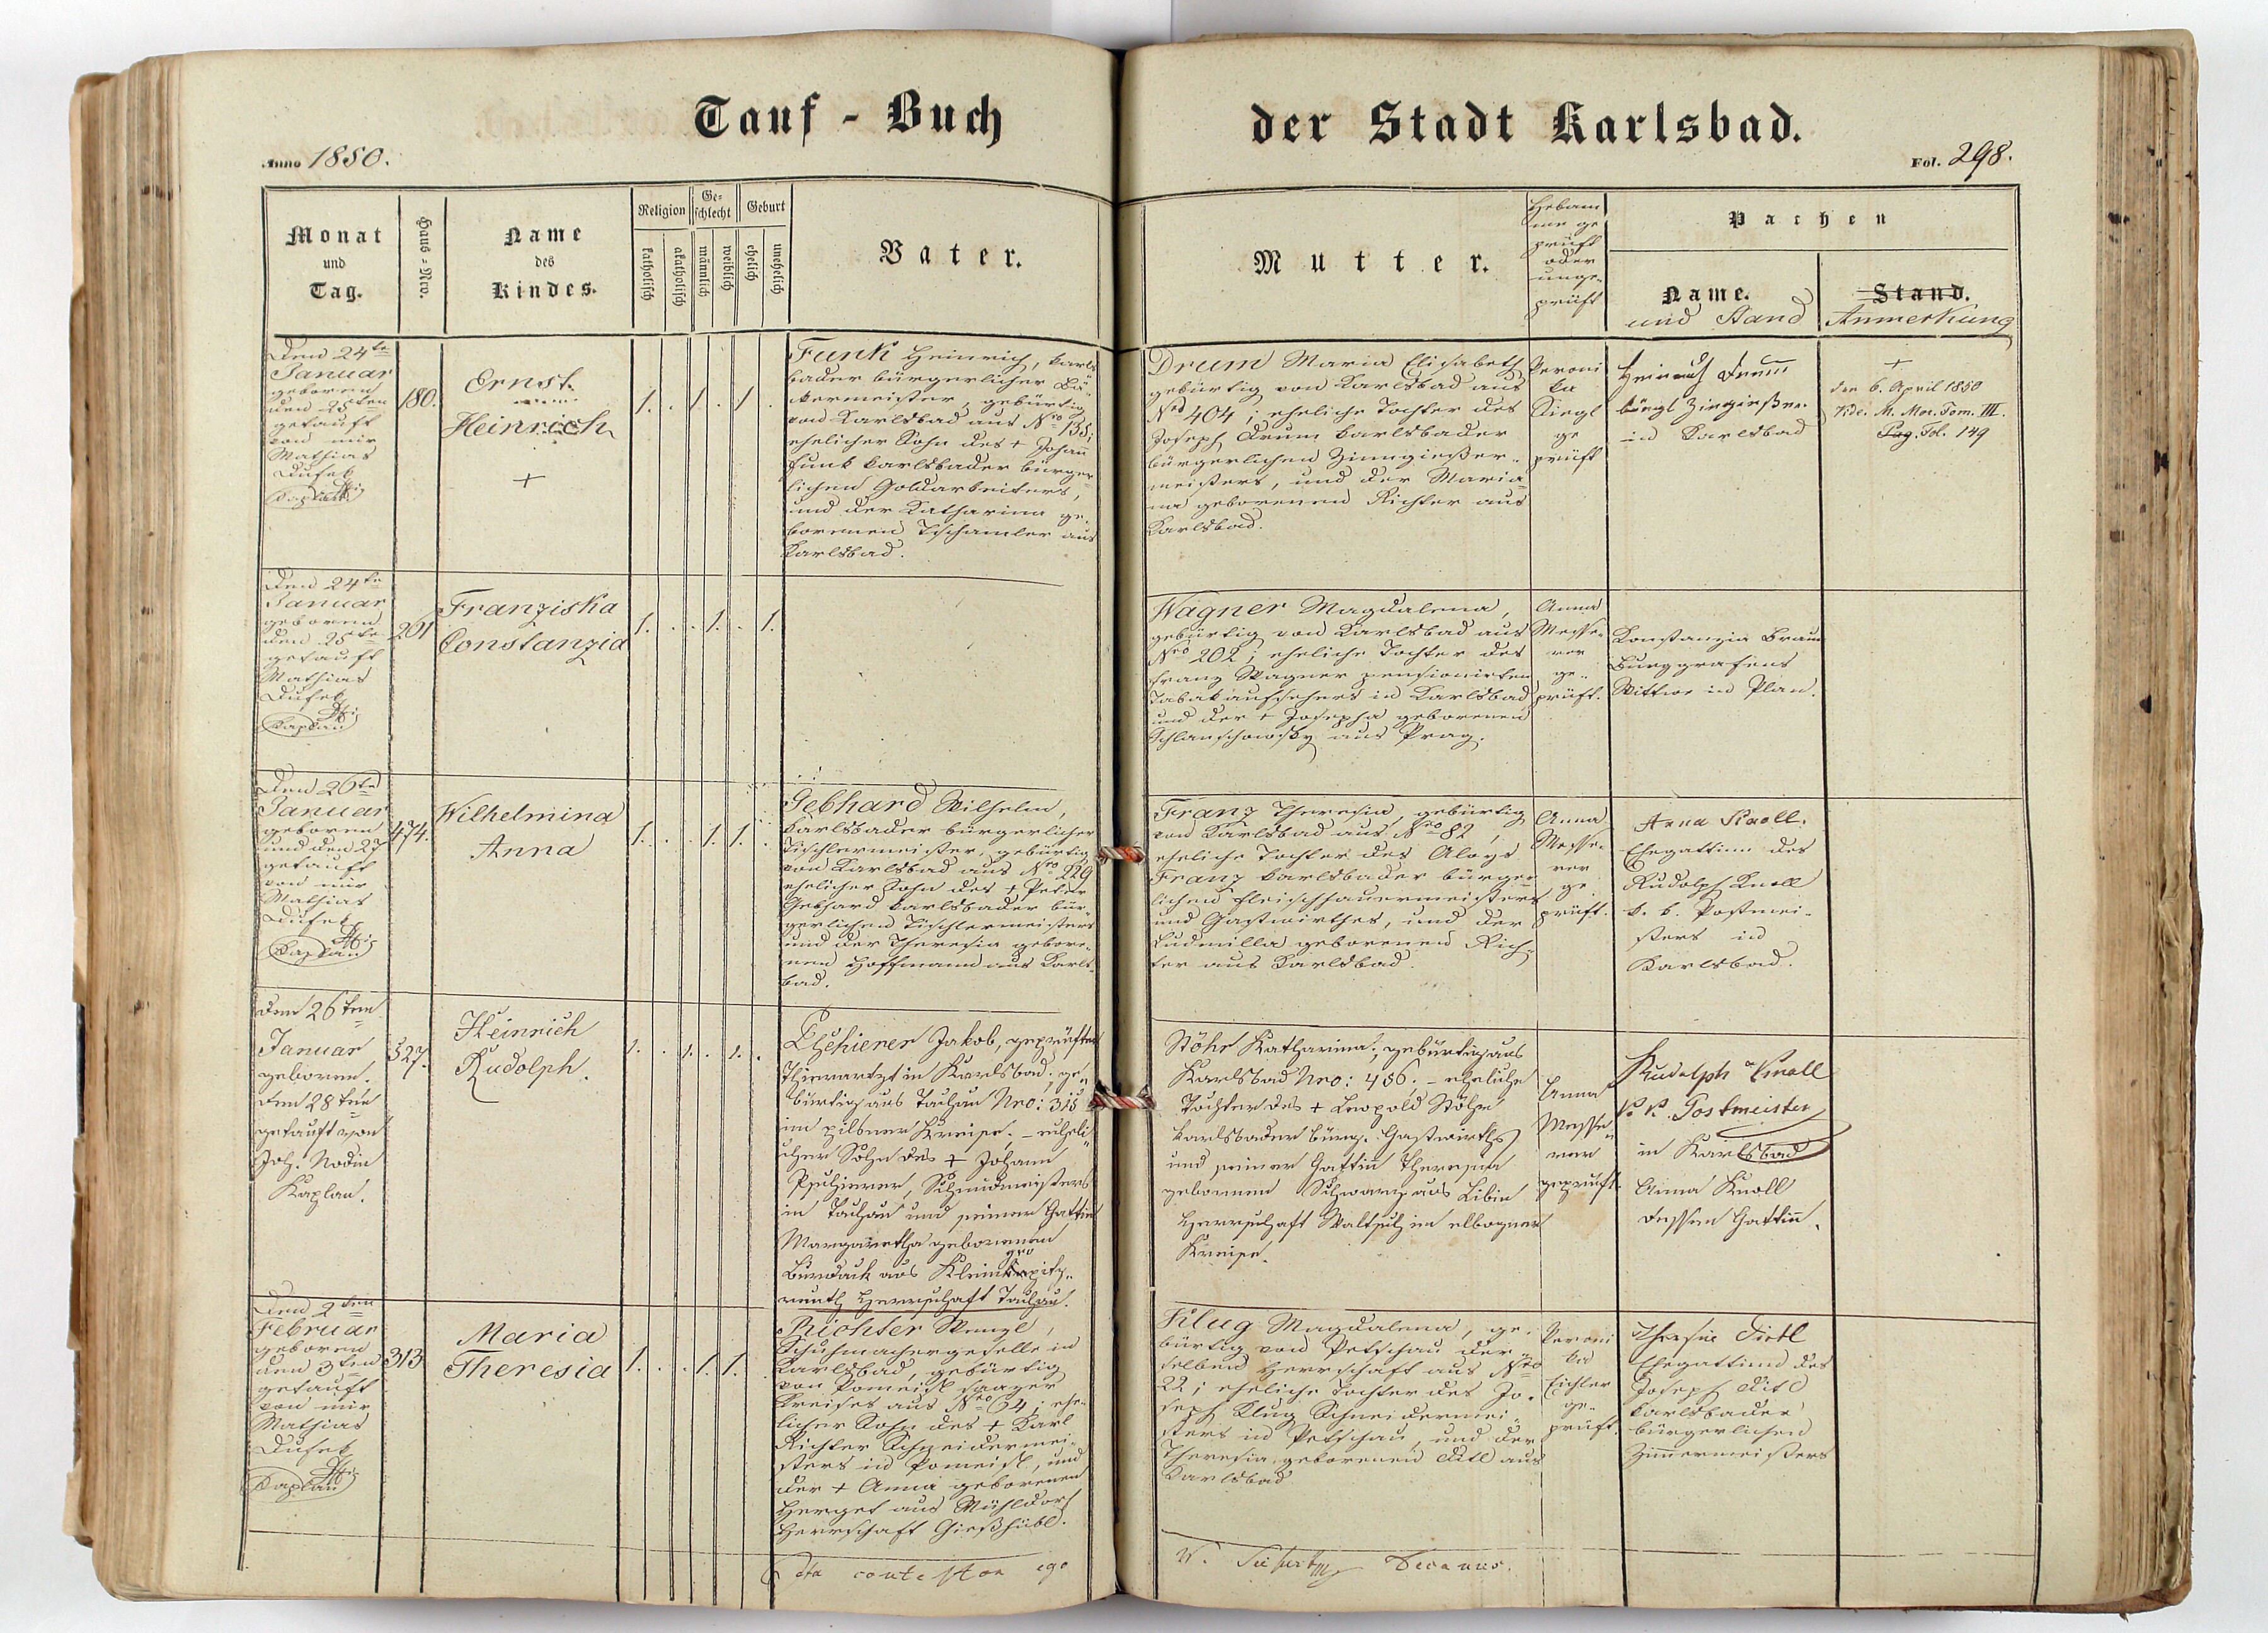 Tauf - Buch
der Stadt Karlsbad.
Anno 1850.
Fol. 298.
Monat
und
Tag.
Haus = Nro.
Name
des
Kindes.
Religion
katholisch
akatholisch
Ge-
schlecht
männlich
weiblich
Geburt
ehelich
unehelich
Vater.
Mutter.
Hebam
me ge
prüft
oder
unge-
prüft
Pathen
Name.
und Stand
Stand.
Anmerkung
Den 24te
Januar
geboren
den 25ten
getauft
von mir
Mathias
Dusek
Kaplan
180.
Ernst
Heinrich
+
1. . 1. . 1. .
Funk Heinrich, Karls-
bader bürgerlicher Bä-
kermeister, gebürtig
von Karlsbad aus Nro 135;
ehelicher Sohn des + Johann
Funk Karlsbader bürger-
lichen Goldarbeiters,
und der Katharina ge-
borenen Tschamler aus
Karlsbad.
Drum Maria Elisabeth
gebürtig von Karlsbad aus
Nro 404; eheliche Tochter des
Joseph Drum Karlsbader
bürgerlichen Zinngießer-
meisters, und der Maria-
na geborenen Richter aus
Karlsbad.
Veroni
ka
Siegl
ge
prüft
Heinrich Drum
bürgl Zingießer
in Karlsbad
+
den 6. April 1850
Vide. M. Mor. Tom. III.
Pag. Fol. 149
Den 24te
Januar
geboren
den 25te
getauft
Mathias
Dusek
Kaplan
201
Franziska
Constanzia
1. . . 1. . 1.
Wagner Magdalena,
gebürtig von Karlsbad aus
Nro 202; eheliche Tochter des
Franz Wagner pensionirten
Tabakaufsehers in Karlsbad
und der + Josepha geborenen
Schlanschowsky aus Prag.
Anna
Messe-
rer
ge-
prüft.
Konstanzia Braun
Burggrafens
Wittwe in Plan.
Den 26te
Januar
geboren
und den 27
getauft
von mir
Mathias
Dusek
Kaplan
474.
Wilhelmina
Anna
1. . . 1. 1. .
Gebhard Wilhelm,
Karlsbader bürgerlicher
Tischlermeister, gebürtig
von Karlsbad aus Nro 229
ehelicher Sohn des + Peter
Gebhard Karlsbader bür-
gerlichen Tischlermeisters
und der Theresia gebore-
nen Hoffmann aus Karls-
bad.
Franz Theresia, gebürtig
von Karlsbad aus Nro 82,
eheliche Tochter des Aloys
Franz Karlsbader bürger-
lichen Fleischhauermeisters
und Gastwirthes, und der
Ludmilla geborenen Rich-
ter aus Karlsbad.
Anna
Messe-
rer
ge
prüft.
Anna Knoll.
Ehegattinn des
Rudolph Knoll
k. k. Postmei-
sters in
Karlsbad.
Den 26ten
Januar
geboren.
den 28ten
getauft von
Joh. Nodin
Kaplan.
327.
Heinrich
Rudolph.
1. . 1. . 1. .
Jakob, geprüfter
Thierarzt in Karlsbad, ge-
bürtig aus Tachau Nro: 315
im pilsner Kreise. - eheli-
cher Sohn des + Johann
Schmiedmeisters
in Tachau und seiner Gattin
Margaretha geborenen
aus
Herrschaft Tachau.
Stöhr Katharina, gebürtig aus
Karlsbad Nro: 456. - eheliche
Tochter des + Leopold Stöhr
Karlsbader bürg. Gastwirths
und seiner Gattin Theresia
gebornen Schwarz aus Libin
Herrschaft Waltsch im elbogner
Kreise.
Anna
Messe-
rer
geprüft.
Rudolph Knoll
K. K. Postmeister
in Karlsbad
Anna Knoll
dessen Gattin.
Den 2ten
Februar
geboren
den 3ten
getauft
von mir
Mathias
Dusek
Kaplan
313
Maria
Theresia
1. . . 1. 1. .
Richter Wenzl,
Schuhmachergeselle in
Karlsbad, gebürtig
von Pomeisl saazer
Kreises aus Nro 64; ehe-
licher Sohn des + Karl
Richter Schneidermei-
sters in Pomeisl, und
der + Anna geborenen
Herget aus Mühldorf
Herrschaft Gießhübl.
Klug Magdalena, ge-
bürtig von Petschau der-
selben Herrschaft aus Nro
22; eheliche Tochter des Jo-
seph Klug Schneidermei-
sters in Petschau, und der
Theresia geborenen Ditl aus
Karlsbad
Veroni
ka
Eichler
ge-
prüft.
Thresia Dietl
Ehegattinn des
Joseph Ditl
Karlsbader
bürgerlichen
Zimmermeisters
Ita contestor ego
Decanus.